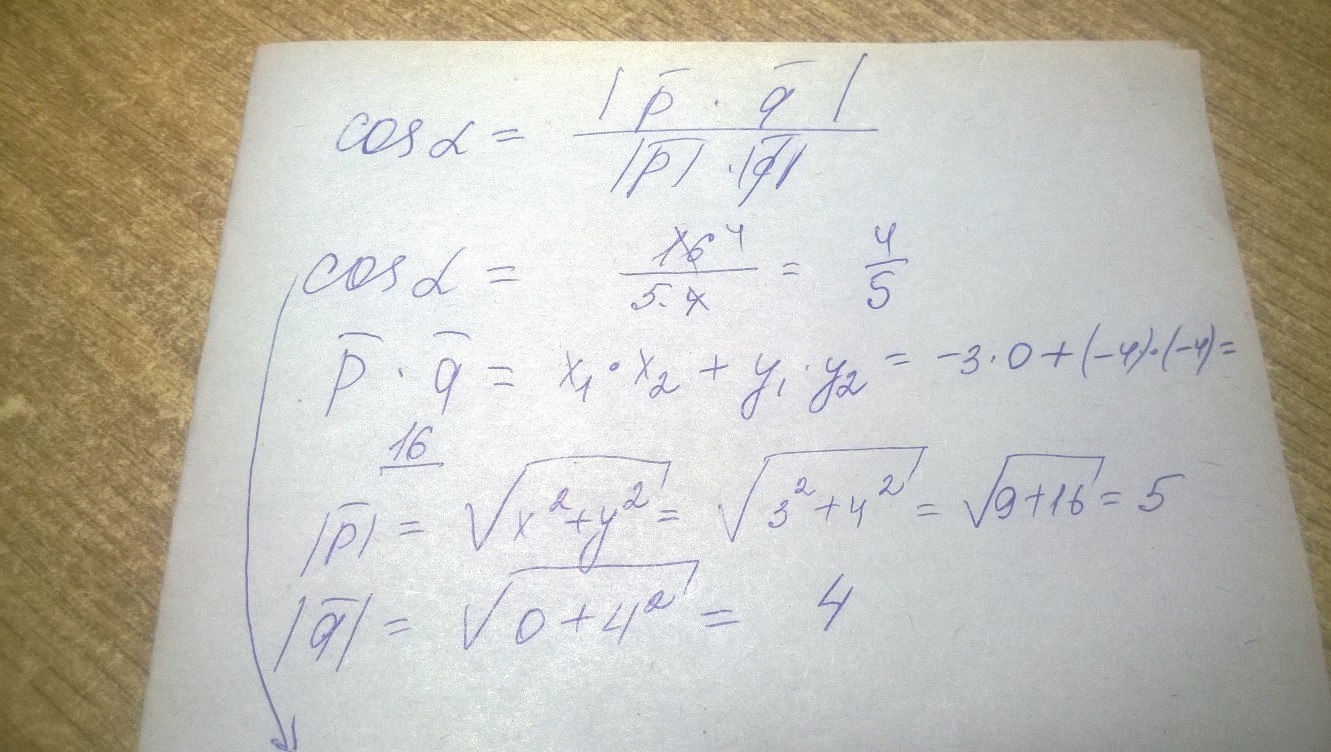 cos α = |p̄ · q̄| / |p̄| · |q̄|
cos α = 16 4 / 5·4 = 4/5
p̄ · q̄ = x₁ · x₂ + y₁ · y₂ = -3 · 0 + (-4) · (-4) =
16
|p̄| = √(x² + y²) = √(3² + 4²) = √(9 + 16) = 5
|q̄| = √(0 + 4²) = 4